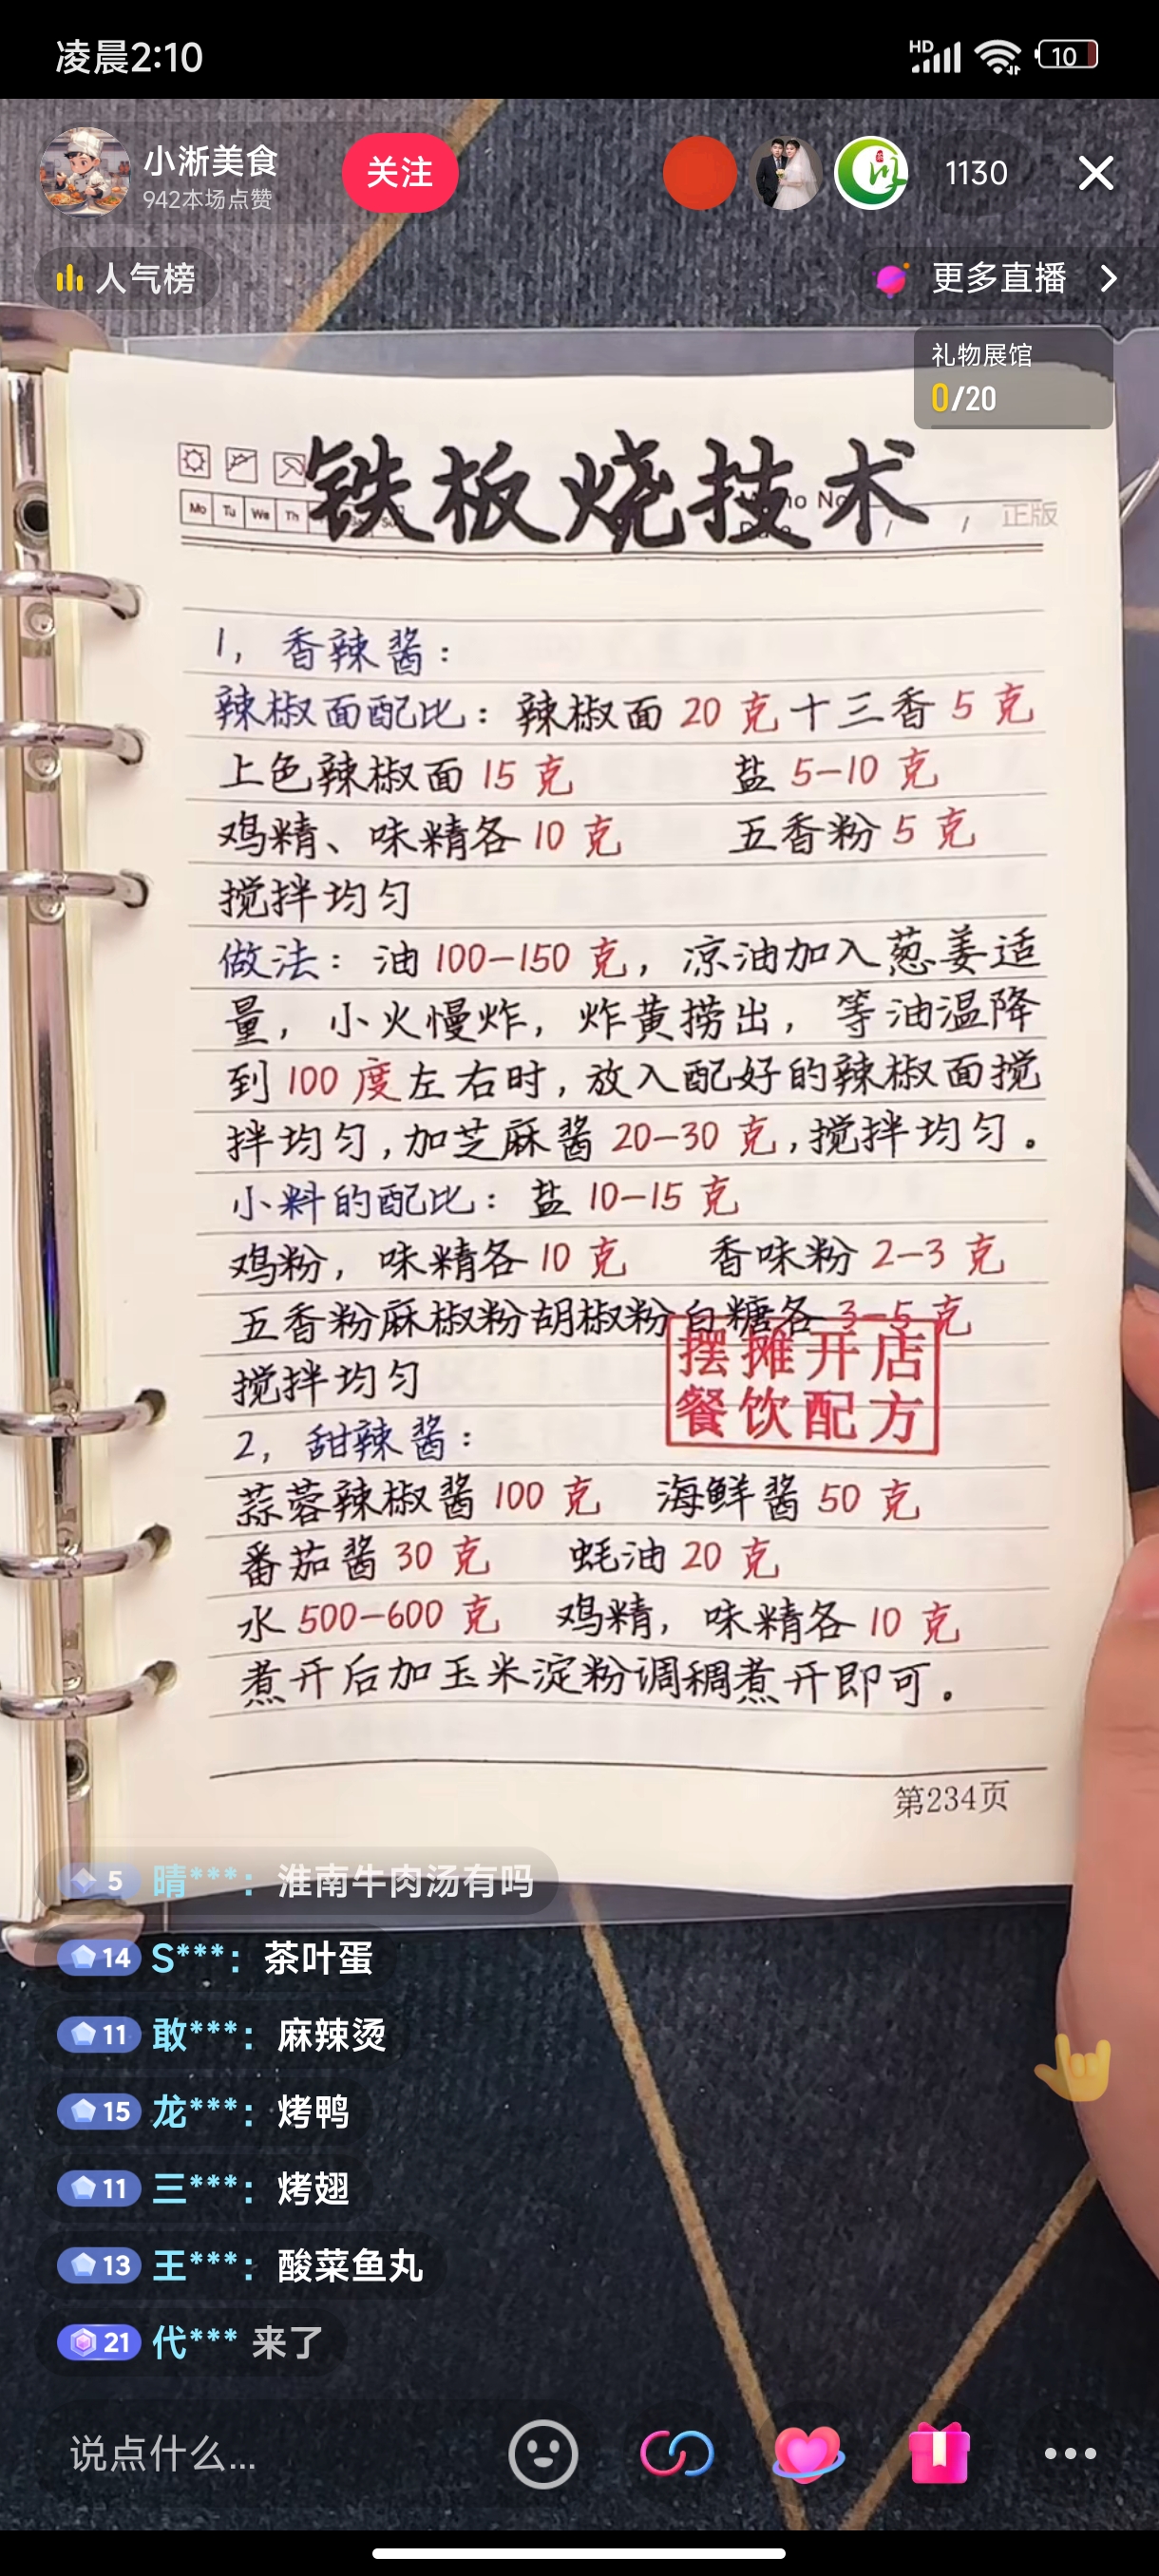 凌晨2:10
HD
10
小淅美食
942本场点赞
关注
1130
人气榜
更多直播
礼物展馆
0/20
铁板烧技术
Mo Tu We Th
正版
1, 香辣酱:
辣椒面配比: 辣椒面 20 克 十三香 5 克
上色辣椒面 15 克 盐 5-10 克
鸡精、味精各 10 克 五香粉 5 克
搅拌均匀
做法: 油 100-150 克, 凉油加入葱姜适
量, 小火慢炸, 炸黄捞出, 等油温降
到 100 度左右时, 放入配好的辣椒面搅
拌均匀, 加芝麻酱 20-30 克, 搅拌均匀。
小料的配比: 盐 10-15 克
鸡粉, 味精各 10 克 香味粉 2-3 克
五香粉麻椒粉胡椒粉白糖各 3-5 克
搅拌均匀
摆摊开店
餐饮配方
2, 甜辣酱:
蒜蓉辣椒酱 100 克 海鲜酱 50 克
番茄酱 30 克 蚝油 20 克
水 500-600 克 鸡精, 味精各 10 克
煮开后加玉米淀粉调稠煮开即可。
第234页
5 晴***: 淮南牛肉汤有吗
14 S***: 茶叶蛋
11 敢***: 麻辣烫
15 龙***: 烤鸭
11 三***: 烤翅
13 王***: 酸菜鱼丸
21 代*** 来了
说点什么...